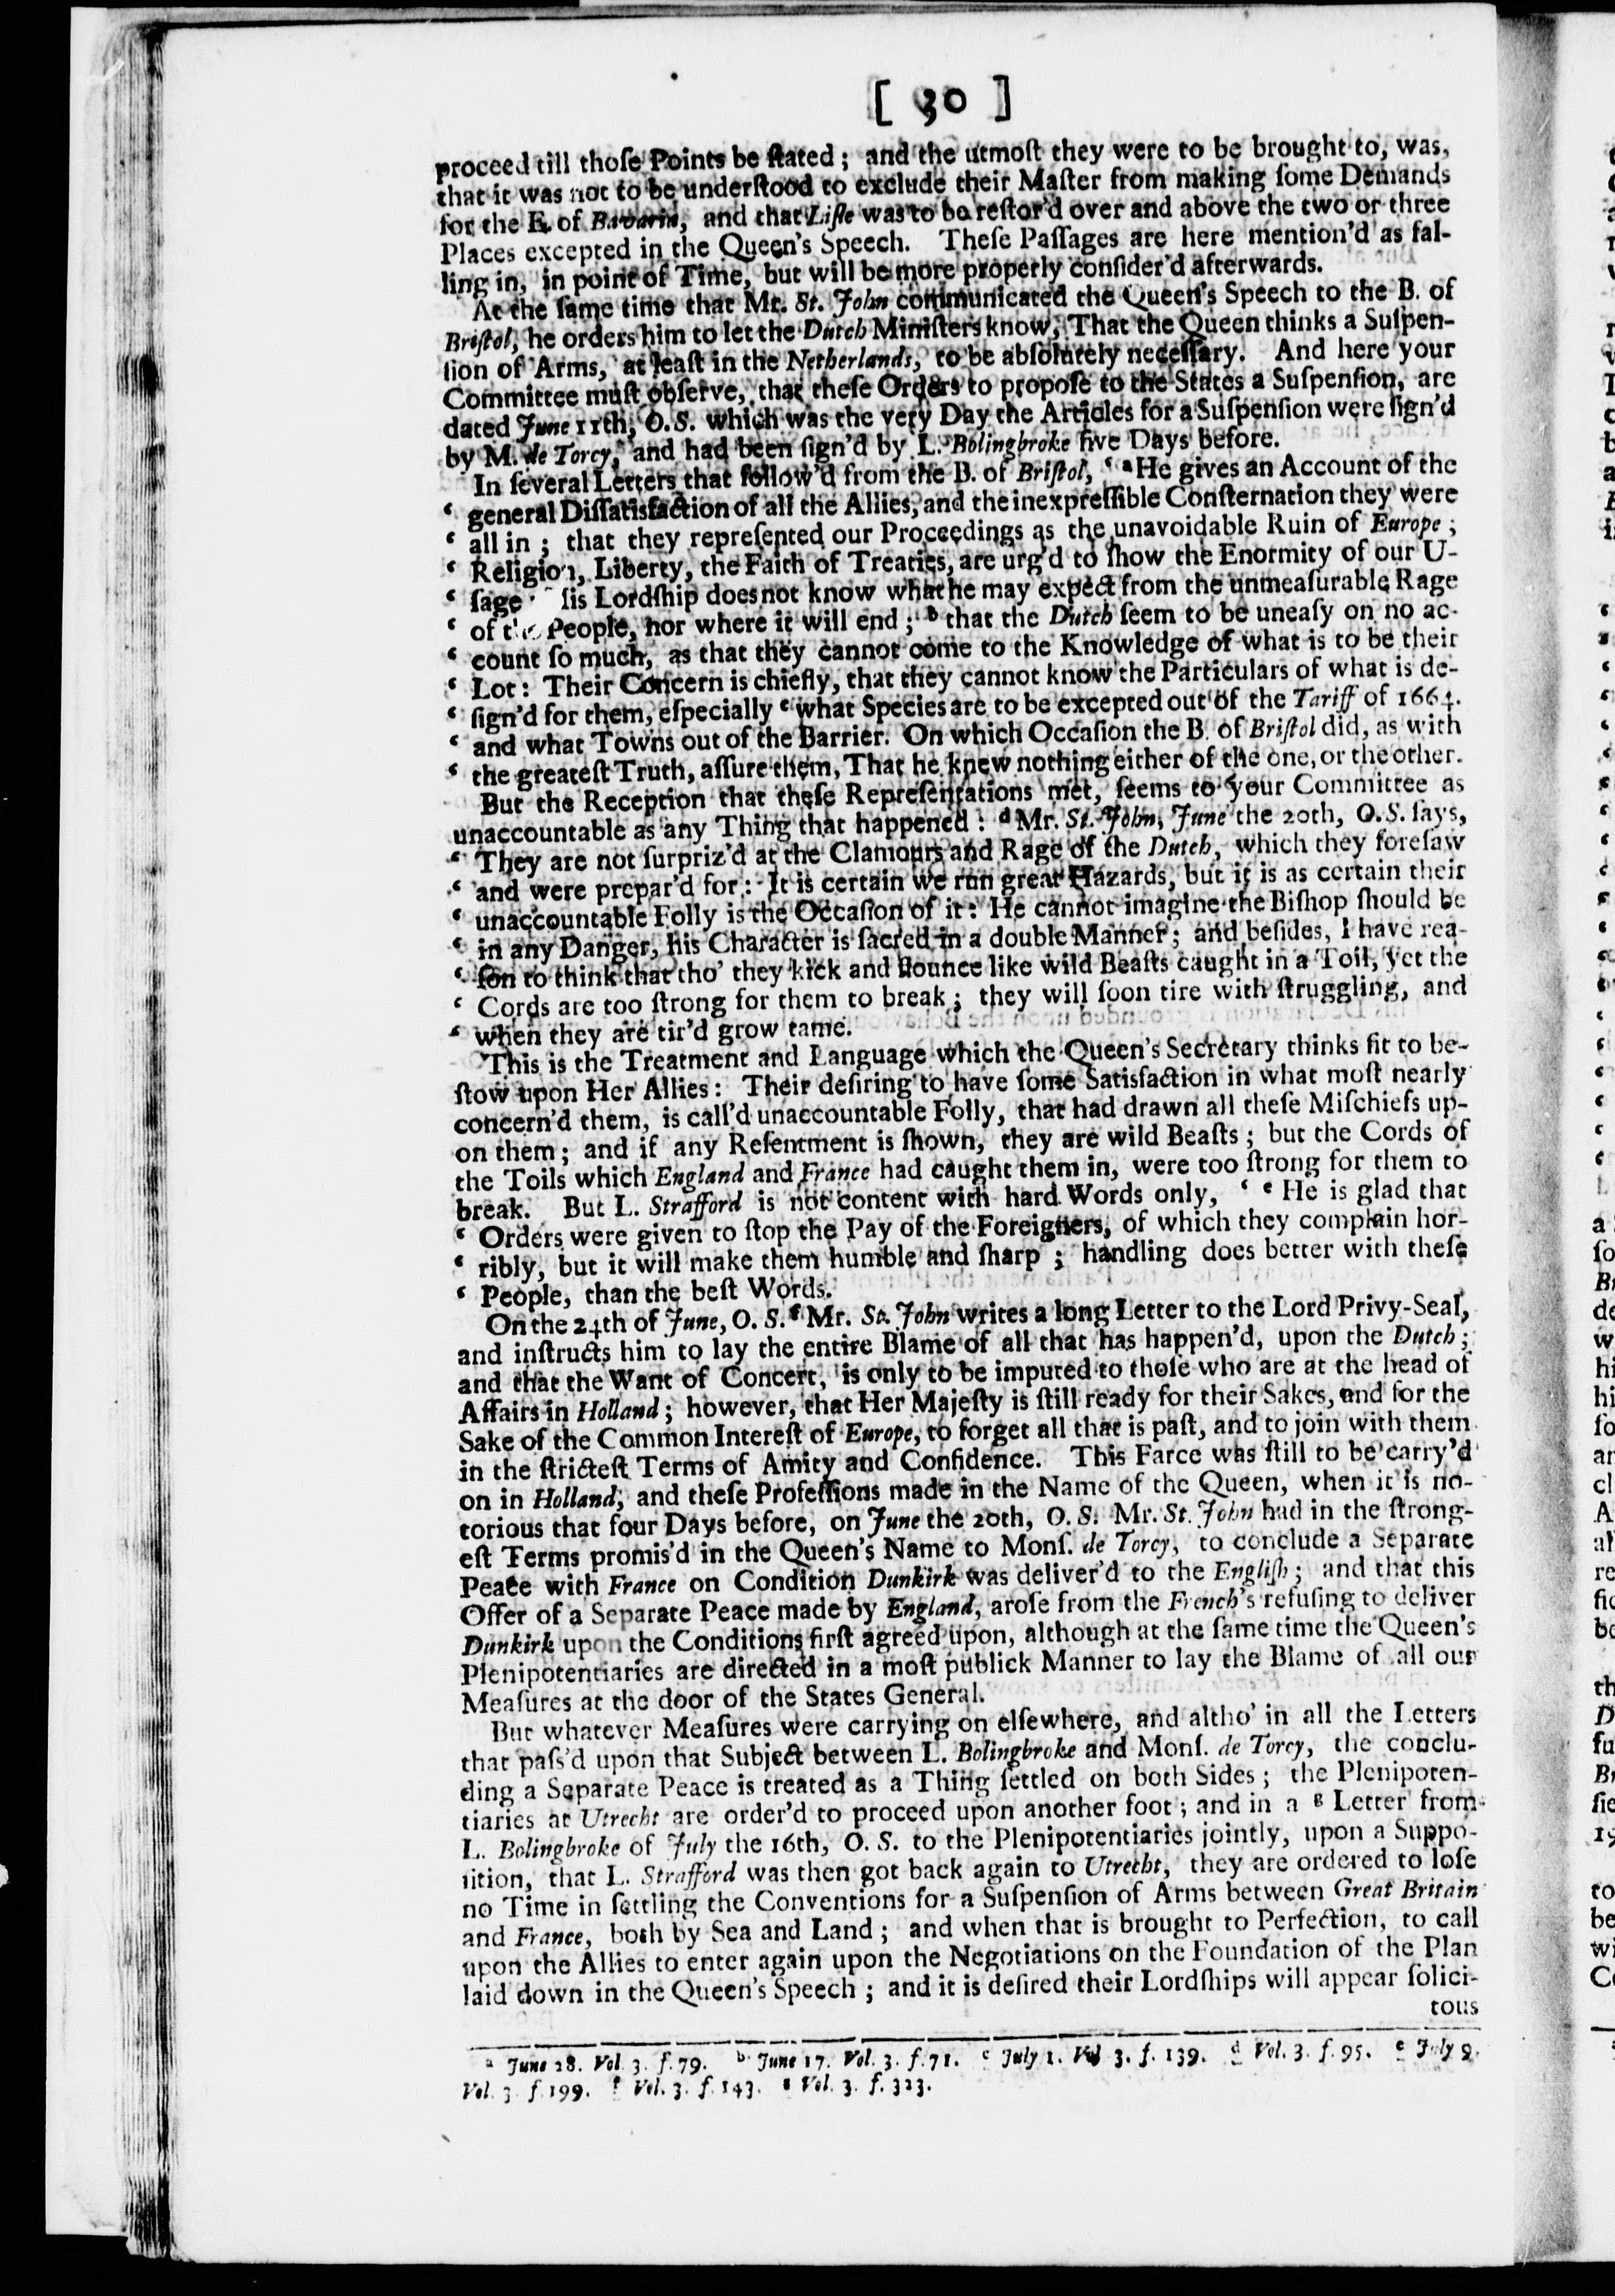 [ 30 ]
proceed till thoſe Points be ſtated; and the utmoſt they were to be brought to, was,
that it was not to be underſtood to exclude their Maſter from making ſome Demands
for the E. of Bavaria, and that Liſle was to be reſtor'd over and above the two or three
Places excepted in the Queen's Speech. Theſe Paſſages are here mention'd as fal-
ling in, in point of Time, but will be more properly conſider'd afterwards.
At the ſame time that Mr. St. John communicated the Queen's Speech to the B. of
Briſtol, he orders him to let the Dutch Miniſters know, That the Queen thinks a Suſpen-
ſion of Arms, at leaſt in the Netherlands, to be abſolutely neceſſary. And here your
Committee muſt obſerve, that theſe Orders to propoſe to the States a Suſpenſion, are
dated June 11th, O. S. which was the very Day the Articles for a Suſpenſion were ſign'd
by M. de Torcy, and had been ſign'd by L. Bolingbroke five Days before.
In ſeveral Letters that follow'd from the B. of Briſtol, ‘ a He gives an Account of the
‘ general Diſſatisfaction of all the Allies, and the inexpreſſible Conſternation they were
‘ all in; that they repreſented our Proceedings as the unavoidable Ruin of Europe;
‘ Religion, Liberty, the Faith of Treaties, are urg'd to ſhow the Enormity of our U-
‘ ſage his Lordſhip does not know what he may expect from the unmeaſurable Rage
‘ of the People, nor where it will end; b that the Dutch ſeem to be uneaſy on no ac-
‘ count ſo much, as that they cannot come to the Knowledge of what is to be their
‘ Lot: Their Concern is chiefly, that they cannot know the Particulars of what is de-
‘ ſign'd for them, eſpecially c what Species are to be excepted out of the Tariff of 1664.
‘ and what Towns out of the Barrier. On which Occaſion the B. of Briſtol did, as with
‘ the greateſt Truth, aſſure them, That he knew nothing either of the one, or the other.
But the Reception that theſe Repreſentations met, ſeems to your Committee as
unaccountable as any Thing that happened: d Mr. St. John, June the 20th, O. S. ſays,
‘ They are not ſurpriz'd at the Clamours and Rage of the Dutch, which they foreſaw
‘ and were prepar'd for: It is certain we run great Hazards, but it is as certain their
‘ unaccountable Folly is the Occaſion of it: He cannot imagine the Biſhop ſhould be
‘ in any Danger, his Character is ſacred in a double Manner; and beſides, I have rea-
‘ ſon to think that tho' they kick and flounce like wild Beaſts caught in a Toil, yet the
‘ Cords are too ſtrong for them to break; they will ſoon tire with ſtruggling, and
‘ when they are tir'd grow tame.
This is the Treatment and Language which the Queen's Secretary thinks fit to be-
ſtow upon Her Allies: Their deſiring to have ſome Satisfaction in what moſt nearly
concern'd them, is call'd unaccountable Folly, that had drawn all theſe Miſchiefs up-
on them; and if any Reſentment is ſhown, they are wild Beaſts; but the Cords of
the Toils which England and France had caught them in, were too ſtrong for them to
break. But L. Strafford is not content with hard Words only, ‘ e He is glad that
‘ Orders were given to ſtop the Pay of the Foreigners, of which they complain hor-
‘ ribly, but it will make them humble and ſharp; handling does better with theſe
‘ People, than the beſt Words.
On the 24th of June, O. S. f Mr. St. John writes a long Letter to the Lord Privy-Seal,
and inſtructs him to lay the entire Blame of all that has happen'd, upon the Dutch;
and that the Want of Concert, is only to be imputed to thoſe who are at the head of
Affairs in Holland; however, that Her Majeſty is ſtill ready for their Sakes, and for the
Sake of the Common Intereſt of Europe, to forget all that is paſt, and to join with them
in the ſtricteſt Terms of Amity and Confidence. This Farce was ſtill to be carry'd
on in Holland, and theſe Profeſſions made in the Name of the Queen, when it is no-
torious that four Days before, on June the 20th, O. S. Mr. St. John had in the ſtrong-
eſt Terms promis'd in the Queen's Name to Monſ. de Torcy, to conclude a Separate
Peace with France on Condition Dunkirk was deliver'd to the Engliſh; and that this
Offer of a Separate Peace made by England, aroſe from the French's refuſing to deliver
Dunkirk upon the Conditions firſt agreed upon, although at the ſame time the Queen's
Plenipotentiaries are directed in a moſt publick Manner to lay the Blame of all our
Meaſures at the door of the States General.
But whatever Meaſures were carrying on elſewhere, and altho' in all the Letters
that paſs'd upon that Subject between L. Bolingbroke and Monſ. de Torcy, the conclu-
ding a Separate Peace is treated as a Thing ſettled on both Sides; the Plenipoten-
tiaries at Utrecht are order'd to proceed upon another foot; and in a g Letter from
L. Bolingbroke of July the 16th, O. S. to the Plenipotentiaries jointly, upon a Suppo-
ſition, that L. Strafford was then got back again to Utrecht, they are ordered to loſe
no Time in ſettling the Conventions for a Suſpenſion of Arms between Great Britain
and France, both by Sea and Land; and when that is brought to Perfection, to call
upon the Allies to enter again upon the Negotiations on the Foundation of the Plan
laid down in the Queen's Speech; and it is deſired their Lordſhips will appear ſolici-
tous
a June 28. Vol. 3. f. 79. b June 17. Vol. 3. f. 71. c July 1. Vol. 3. f. 139. d Vol. 3. f. 95. e July 9.
Vol. 3. f. 199. f Vol. 3. f. 143. g Vol. 3. f. 323.